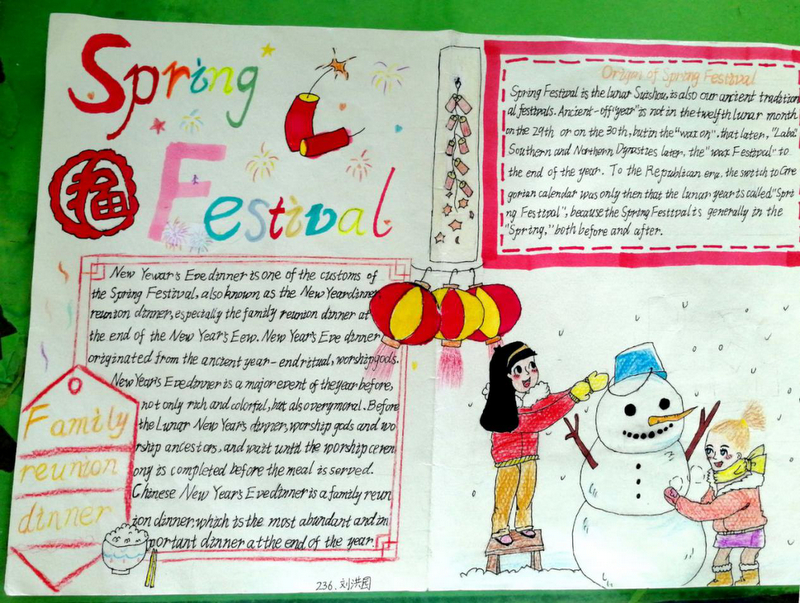 Spring
Festival
福
New Yewar's Eve dinner is one of the customs of
the Spring Festival, also known as the New Year dinner
reunion dinner, especially the family reunion dinner at
the end of the New Year's Eew. New Year's Eve dinner
originated from the ancient year-end ritual, worship gods.
New Year's Eve dinner is a major event of the year before,
not only rich and colorful, but also very moral. Before
the Lunar New Year's dinner, worship gods and wo
rship ancestors, and wait until the worship cerem
ony is completed before the meal is served.
Chinese New Year's Eve dinner is a family reun
ion dinner, which is the most abundant and im
portant dinner at the end of the year.
Family
reunion
dinner
236.刘洪园
Origin of Spring Festival
Spring Festival is the lunar Suishou, is also our ancient tradition
al festivals. Ancient-off "year" is not in the twelfth lunar month
on the 29th or on the 30th, but in the "wax on", that later, "Laba"
Southern and Northern Dynasties later, the "wax Festival" to
the end of the year. To the Republican era, the switch to Gre
gorian calendar was only then that the lunar year is called "Spri
ng Festival", because the Spring Festival is generally in the
"Spring," both before and after.